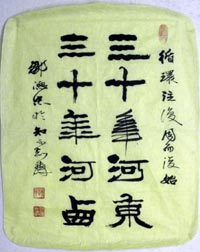 循環往復周而復始
三十年河東
三十年河西
鄧
於知